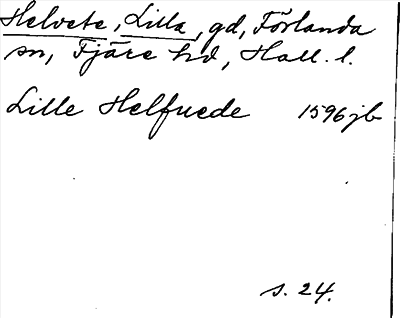 Helvete, Lilla, gd, Förlanda
sn, Fjäre hd, Hall. l.
Lille Helfuede 1596 jb
s. 24.